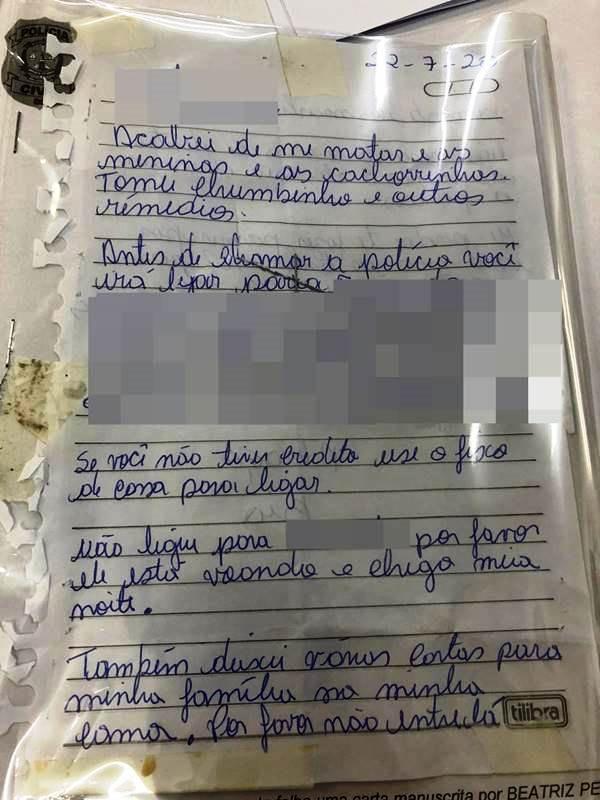 POLÍCIA
CIV
22-7-20
Acabei de me matar e as
meninas e as cachorrinhas.
Tomei chumbinho e outros
remédios.
Antes de chamar a polícia você
irá ligar para
Se você não tiver credito use o fixo
de casa para ligar.
Não ligue para por favor
ele está voando e chega meia
noite.
Também deixei várias cartas para
minha família na minha
cama. Por favor não
tilibra
uma carta manuscrita por BEATRIZ PE